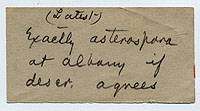 (Latest)
Exactly asterospora
at Albany if
descr. agrees